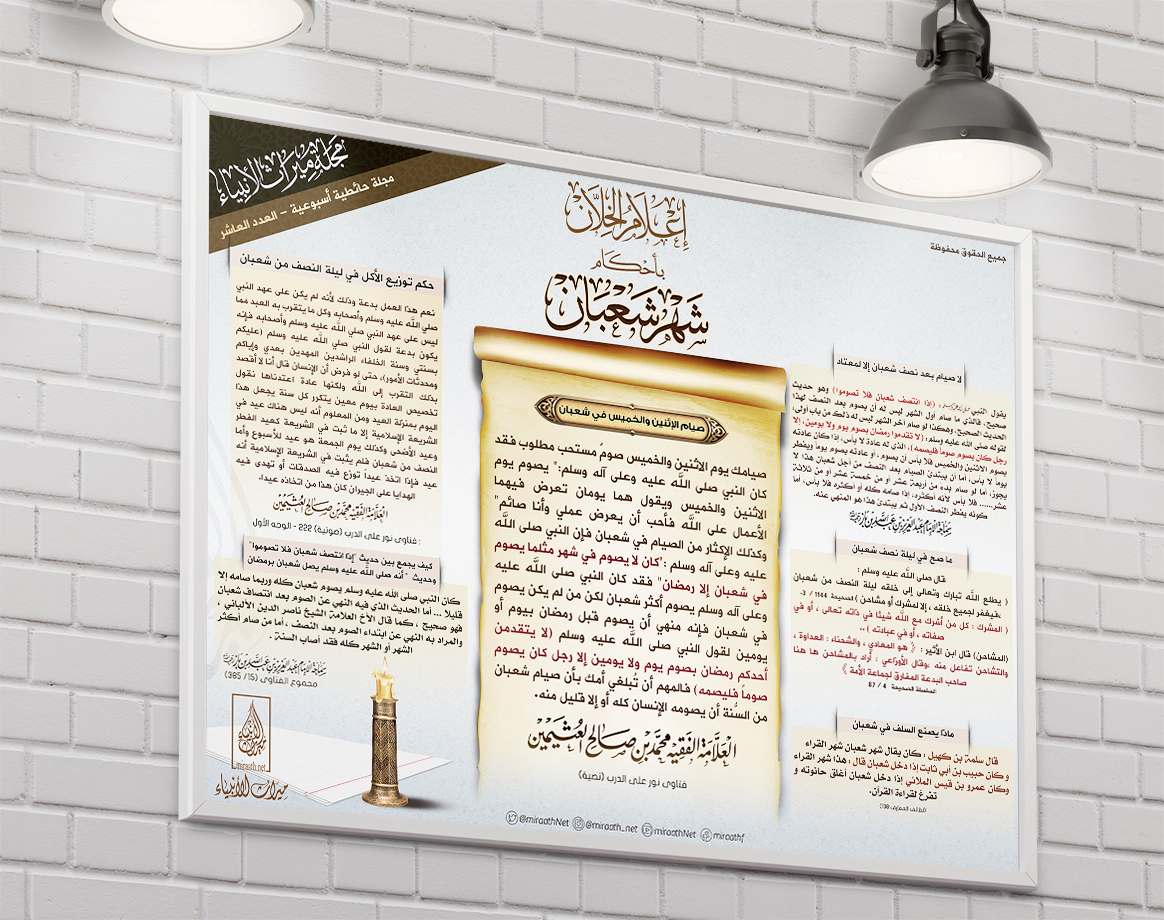 مجلة ميراث الأنبياء
مجلة حائطية أسبوعية - العدد العاشر
إعلام الخلان
بأحكام
شهر شعبان
جميع الحقوق محفوظة
لا صيام بعد نصف شعبان إلا لمعتاد
يقول النبي ﷺ : (إذا انتصف شعبان فلا تصوموا) وهو حديث
صحيح، فالذي ما صام أول الشهر ليس له أن يصوم بعد النصف لهذا
الحديث الصحيح، وهكذا لو صام آخر الشهر ليس له ذلك من باب أولى؛
لقوله صلى الله عليه وسلم: (لا تقدموا رمضان بصوم يوم ولا يومين، إلا
رجل كان يصوم صوماً فليصمه)، الذي له عادة لا بأس، إذا كان عادته
يصوم الاثنين والخميس فلا بأس أن يصوم، أو عادته يصوم يوماً ويفطر
يوماً لا بأس، أما أن يبتدئ الصيام بعد النصف من أجل شعبان هذا لا
يجوز، أما لو صام بدء من أربعة عشر أو من خمسة عشر أو من ثلاثة
عشر...... فلا بأس لأنه أكثره، إذا صامه كله أو أكثره فلا بأس، أما
كونه يفطر النصف الأول ثم يبتدئ هذا هو المنهي عنه.
سماحة الإمام عبد العزيز بن عبد الله بن باز
ما صح في ليلة نصف شعبان
قال صلى الله عليه وسلم :
( يطلع الله تبارك وتعالى إلى خلقه ليلة النصف من شعبان
،فيغفر لجميع خلقه ، إلا لمشرك أو مشاحن ) الصحيحة 1144 / 3.
( المشرك : كل من أشرك مع الله شيئا في ذاته تعالى ، أو في
صفاته ، أو في عبادته ) ..
(المشاحن) قال ابن الأثير : { هو المعادي ، والشحناء : العداوة ،
والتشاحن تفاعل منه .وقال الأوزاعي : أراد بالمشاحن ها هنا
صاحب البدعة المفارق لجماعة الأمة }
السلسلة الصحيحة 4 / 87
ماذا يصنع السلف في شعبان
قال سلمة بن كهيل : كان يقال شهر شعبان شهر القراء
وكان حبيب بن أبي ثابت إذا دخل شعبان قال : هذا شهر القراء
وكان عمرو بن قيس الملائي إذا دخل شعبان أغلق حانوته و
تفرغ لقراءة القرآن.
(لطائف المعارف 138)
صيام الإثنين والخميس في شعبان
صيامك يوم الاثنين والخميس صومٌ مستحب مطلوب فقد
كان النبي صلى الله عليه وعلى آله وسلم:" يصوم يوم
الاثنين والخميس ويقول هما يومان تعرض فيهما
الأعمال على الله فأحب أن يعرض عملي وأنا صائم"
وكذلك الإكثار من الصيام في شعبان فإن النبي صلى الله
عليه وعلى آله وسلم :"كان لا يصوم في شهر مثلما يصوم
في شعبان إلا رمضان" فقد كان النبي صلى الله عليه
وعلى آله وسلم يصوم أكثر شعبان لكن من لم يكن يصوم
في شعبان فإنه منهي أن يصوم قبل رمضان بيوم أو
يومين لقول النبي صلى الله عليه وسلم (لا يتقدمن
أحدكم رمضان بصوم يوم ولا يومين إلا رجل كان يصوم
صوماً فليصمه) فالمهم أن تُبلغي أمك بأن صيام شعبان
من السُّنة أن يصومه الإنسان كله أو إلا قليل منه.
العلامة الفقيه محمد بن صالح العثيمين
فتاوى نور على الدرب (نصية)
حكم توزيع الأكل في ليلة النصف من شعبان
نعم هذا العمل بدعة وذلك لأنه لم يكن على عهد النبي
صلى الله عليه وسلم وأصحابه وكل ما يتقرب به العبد مما
ليس على عهد النبي صلى الله عليه وسلم وأصحابه فإنه
يكون بدعة لقول النبي صلى الله عليه وسلم (عليكم
بسنتي وسنة الخلفاء الراشدين المهدين بعدي وإياكم
ومحدثات الأمور)، حتى لو فرض أن الإنسان قال أنا لا أقصد
بذلك التقرب إلى الله ولكنها عادة اعتدناها نقول
تخصيص العادة بيوم معين يتكرر كل سنة يجعل هذا
اليوم بمنزلة العيد ومن المعلوم أنه ليس هناك عيد في
الشريعة الإسلامية إلا ما ثبت في الشريعة كعيد الفطر
وعيد الأضحى وكذلك يوم الجمعة هو عيد للأسبوع وأما
النصف من شعبان فلم يثبت في الشريعة الإسلامية أنه
عيد فإذا اتخذ عيداً توزع فيه الصدقات أو تهدى فيه
الهدايا على الجيران كان هذا من اتخاذه عيدا.
العلامة الفقيه محمد بن صالح العثيمين
: فتاوى نور على الدرب (صوتية) 222 - الوجه الأول
كيف يجمع بين حديث "إذا انتصف شعبان فلا تصوموا"
وحديث " أنه صلى الله عليه وسلم يصل شعبان برمضان
كان النبي صلى الله عليه وسلم يصوم شعبان كله وربما صامه إلا
قليلاً ... أما الحديث الذي فيه النهي عن الصوم بعد انتصاف شعبان
فهو صحيح ، كما قال الأخ العلامة الشيخ ناصر الدين الألباني ،
والمراد به النهي عن ابتداء الصوم بعد النصف ، أما من صام أكثر
الشهر أو الشهر كله فقد أصاب السنة .
سماحة الإمام عبد العزيز بن عبد الله بن باز
مجموع الفتاوى (15/ 385)
ميراث الأنبياء
miraath.net
ميراث الأنبياء
@miraathNet @miraath_net miraathNet miraathf